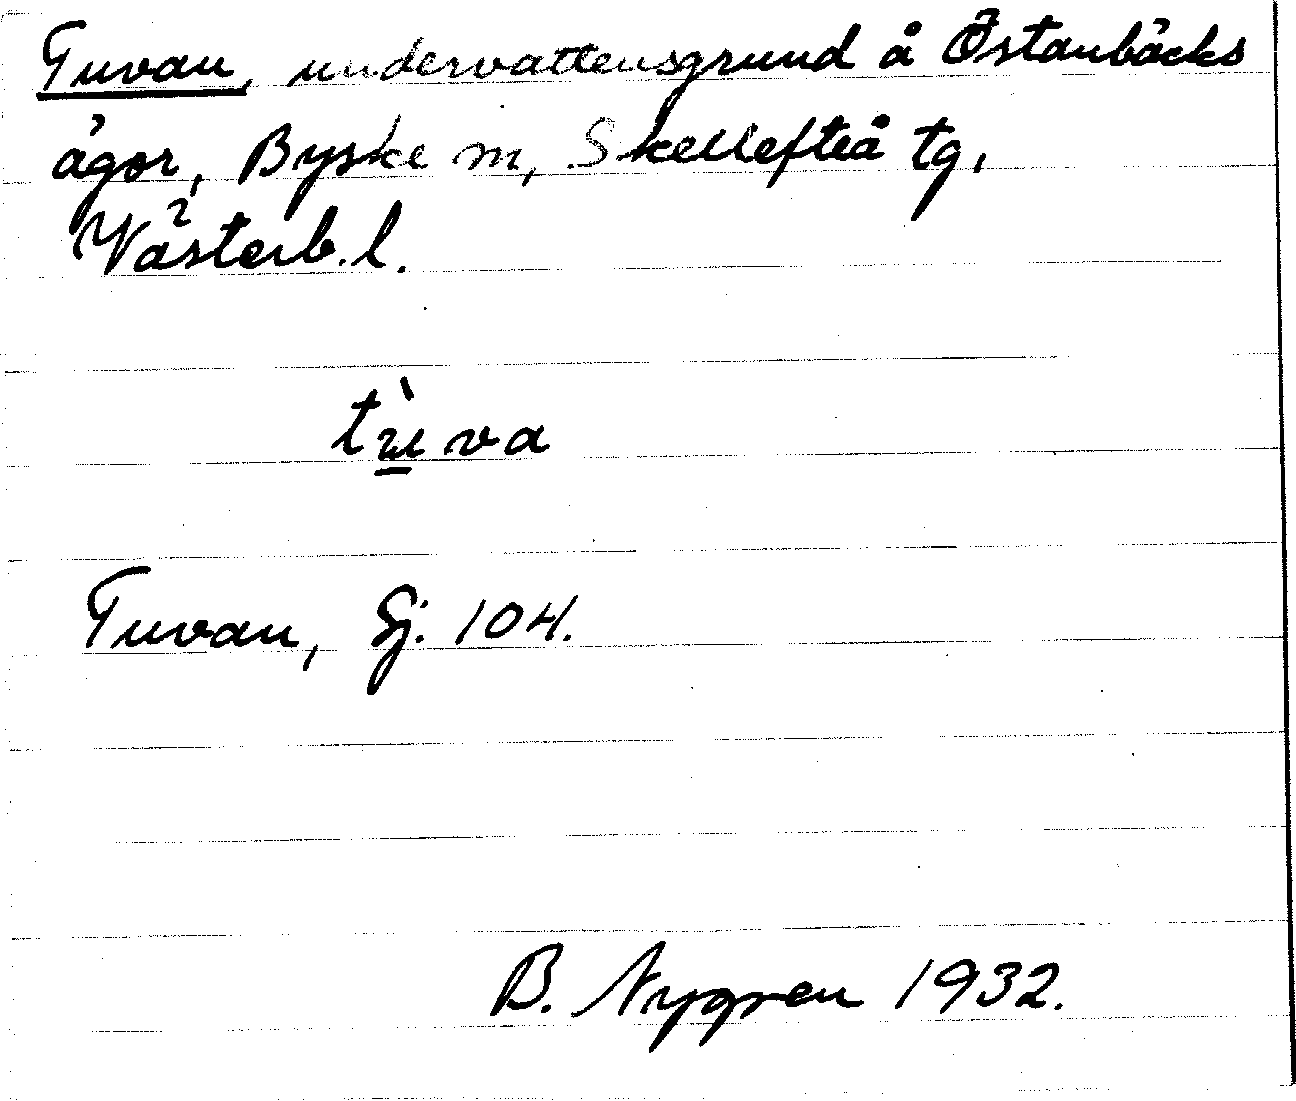 Tuvan, undervattensgrund å Östanbäcks
ägor, Byske sn, Skellefteå tg,
Västerb. l.
tùva
Tuvan, Sj. 104.
B. Nygren 1932.